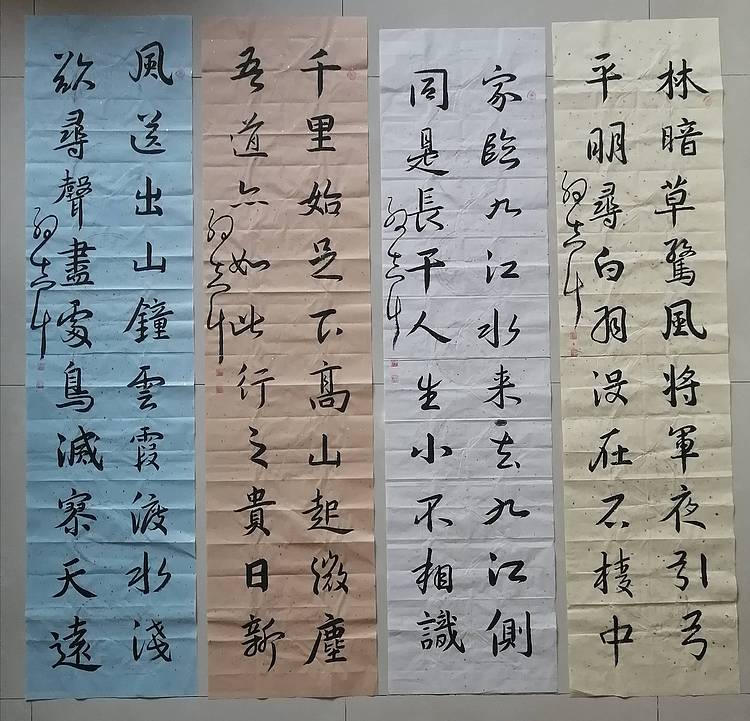 林暗草驚風將軍夜引弓
平明尋白羽沒在石棱中
家臨九江水来去九江側
同是長干人生小不相識
千里始足下高山起微塵
吾道亦如此行之貴日新
風送出山鐘雲霞渡水淺
欲尋聲盡處鳥滅寥天遠